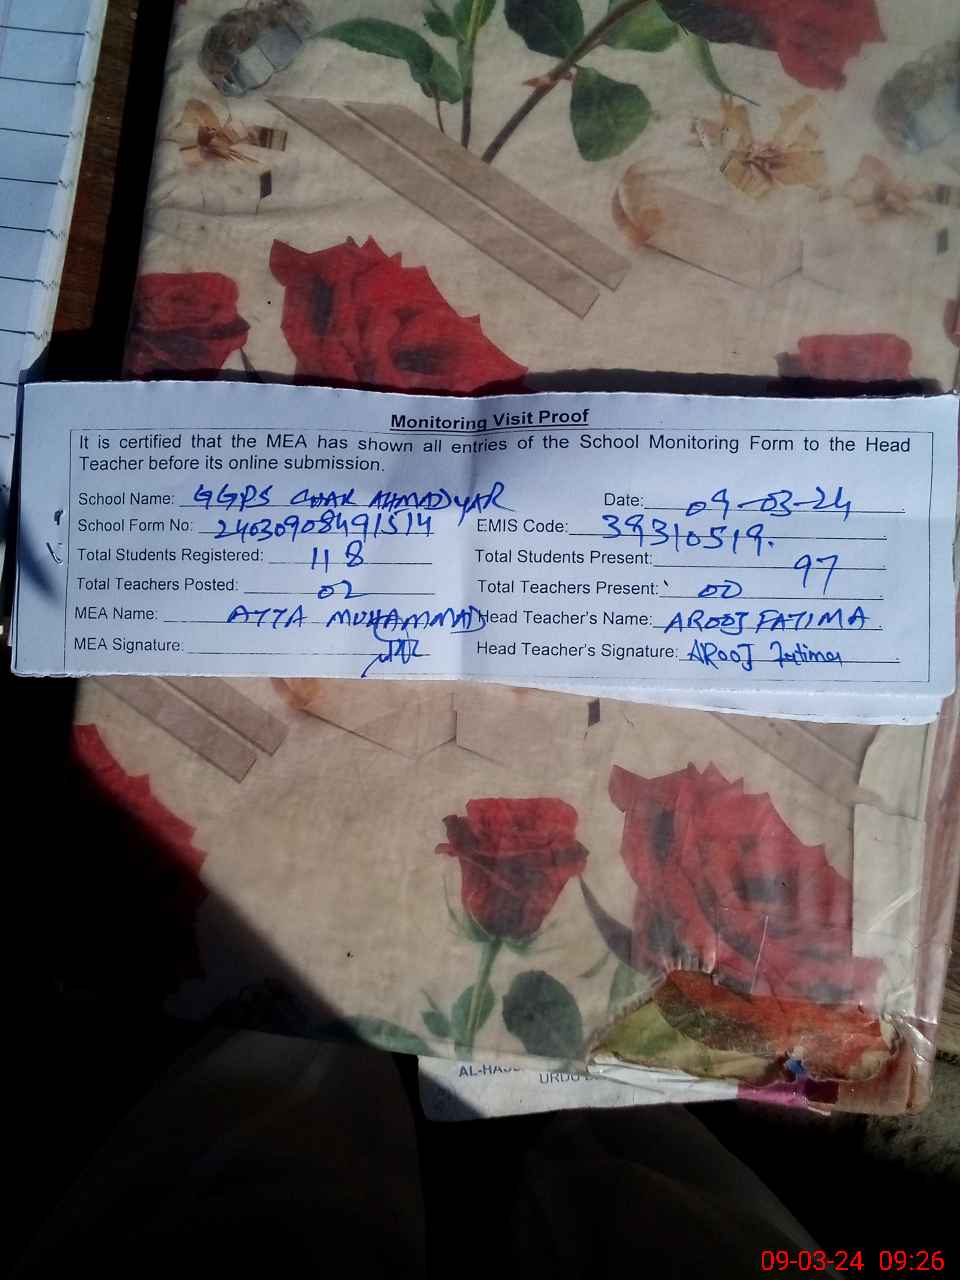 Monitoring Visit Proof
It is certified that the MEA has shown all entries of the School Monitoring Form to the Head
Teacher before its online submission.
School Name: GGPS CHAK AHMAD YAR Date: 09-03-24
School Form No: 24030908491514 EMIS Code: 39310519.
Total Students Registered: 118 Total Students Present: 97
Total Teachers Posted: 02 Total Teachers Present: 00
MEA Name: ATTA MUHAMMAD Head Teacher's Name: AROOJ FATIMA
MEA Signature: Head Teacher's Signature: AROOJ Fatima
URDU
09-03-24 09:26